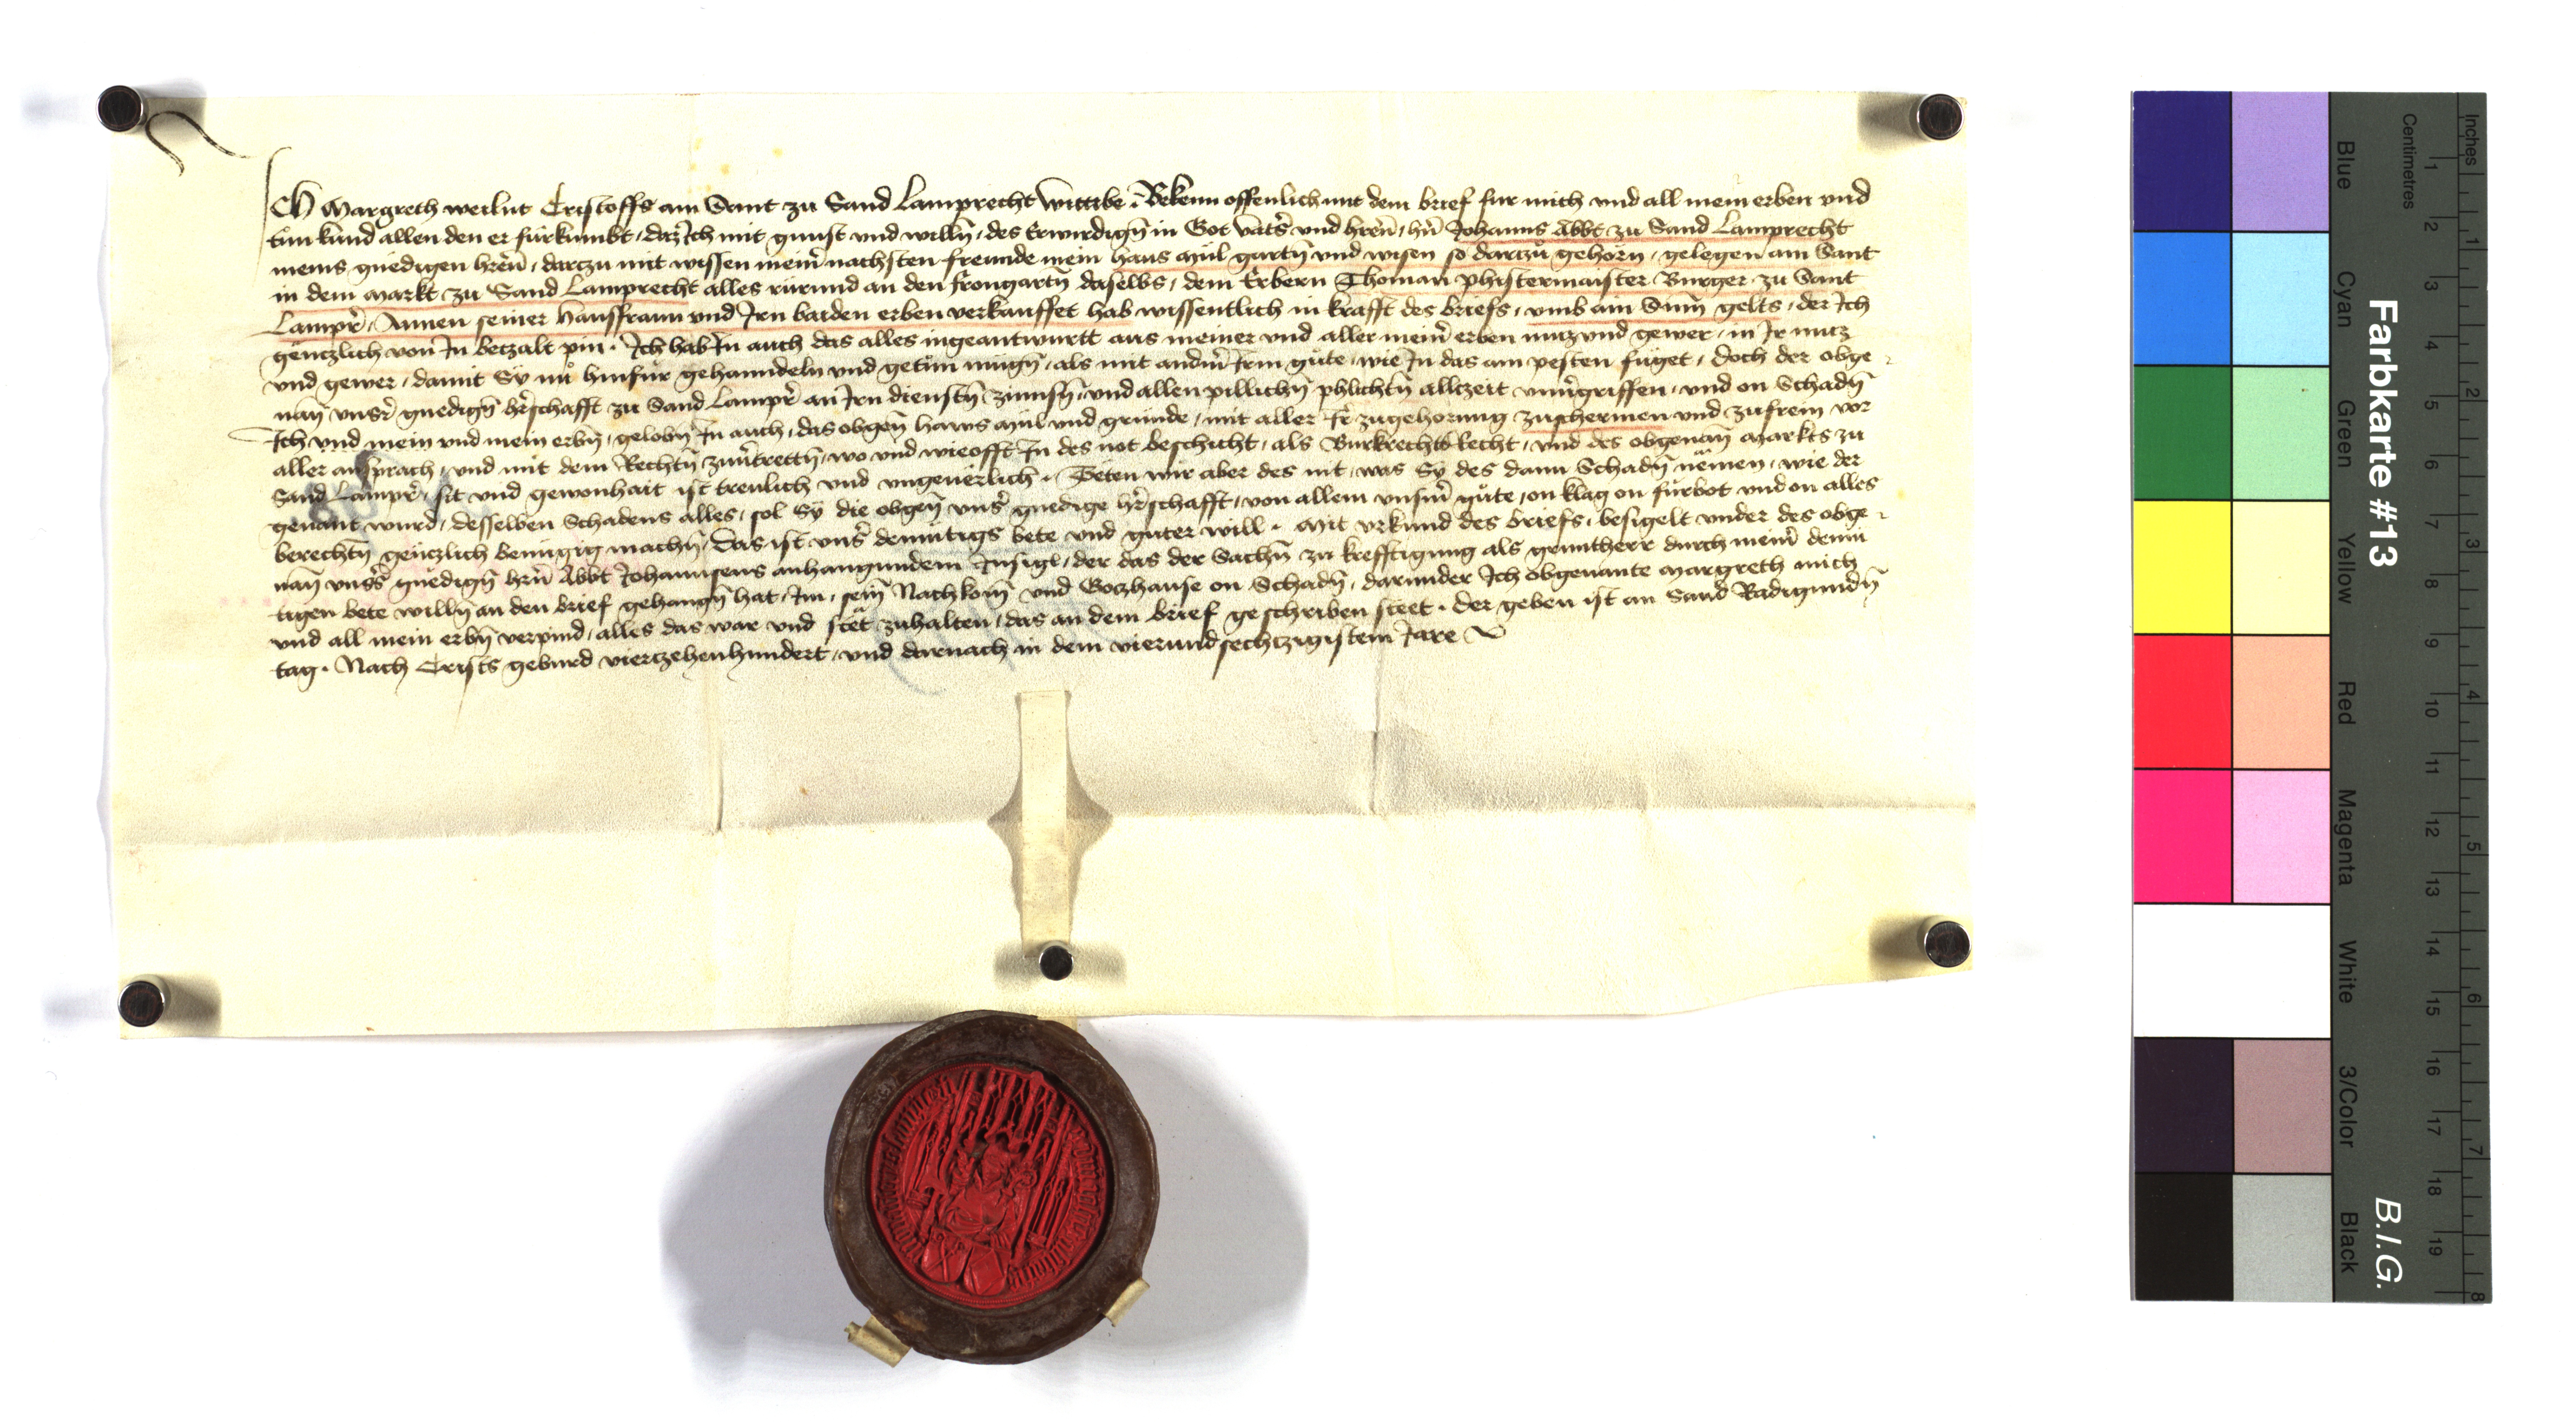 Ich Margreth weilnt Cristoffs am Sant zu Sand Lamprecht wittibe. Bekenn offenlich mit dem brief fur mich vnd all mein erben vnd
tun kund allen den er furkumbt, daz Ich mit gunst vnd willn̄, des Erwirdign̄ in Got vatr̄s vnd hren̄, hn̄ Johanns Abbt zu Sand Lamprecht
meins gnedigen hren̄, darczu mit wissen mein̄ nachsten freunde mein haus mül gartn̄ vnd wisen so darczu gehörn, gelegen am Sant
in dem Markt zu Sand Lamprecht alles rurund an den frongartn̄ daselbs, dem Erbern Thoman phistermaister Burger zu Sant
Lampr̄, Annen seiner hausfraun vnd Irn baiden erben verkauffet hab wissentlich in krafft des briefs, vmb ain Sum̄ gelts, der Ich
genczlich von In beczalt pin. Ich hab In auch das alles ingeantwurtt aus meiner vnd aller mein̄ erben nucz vnd gewer, in Ir nutz
vnd gewer, damit Sy nu hinfur gehanndeln vnd getun mugn̄, als mit andm̄ Irm gute, wie In das am pesten fuget, doch der obge-
nan̄ vnsr̄ gnedign̄ hr̄schafft zu Sand Lampr̄ an Irn dienstn̄ zinnsn̄, vnd allen pillichn̄ phlichtn̄ allczeit vnuͤgriffen, vnd on Schadn̄
Ich vnd mein vnd mein erbn̄, gelobn̄ In auch, das obgen̄ haws mül vnd grunde, mit aller Ir zugehorung zuschermen vnd zufrein vor
aller ansprach, vnd mit dem Rechtn̄ zuuͤtrettn̄, wo vnd wieofft In des not beschicht, als Burkrechts Recht, vnd des obgenan̄ Markts zu
Sand Lampr̄, sit vnd gewonhait ist treulich vnd vngeuerlich. Teten wir aber des nit, was Sy des dann Schadn̄ nemen, wie der
genant wurd, desselben Schadens alles, sol Sy die obgen̄ vnsr̄ gnedige hr̄schafft, von allem vnsm̄ gute, on klag on furbot vnd on alles
berechtn̄ genczlich benugig machn̄, Das ist vnsr̄ demutigs bete vnd guter will. Mit vrkund des briefs, besigelt vnder des obge-
nan̄ vnsr̄s gnedign̄ hrn̄ Abbt Johannsens anhangundem Insigl, der das der Sachn̄ zu krefftigung als gruntherr durch mein̄ demu
tigen bete willn̄ an den brief gehangn̄ hat, Im, sein̄ Nachkom̄ vnd Gozhause on Schadn̄, darunder Ich obgenante Margreth mich
vnd all mein erbn̄ verpind, alles das war vnd stet zuhalten, das an dem brief geschriben steet. der geben ist an Sand Radigundn̄
tag. Nach Crists geburd vierczehenhundert, vnd darnach in dem vierundsechtzigistem Jare
Farbkarte #13
B.I.G.
Centimetres
Inches
Blue
Cyan
Green
Yellow
Red
Magenta
White
3/Color
Black
1 2 3 4 5 6 7 8 9 10 11 12 13 14 15 16 17 18 19
1 2 3 4 5 6 7 8